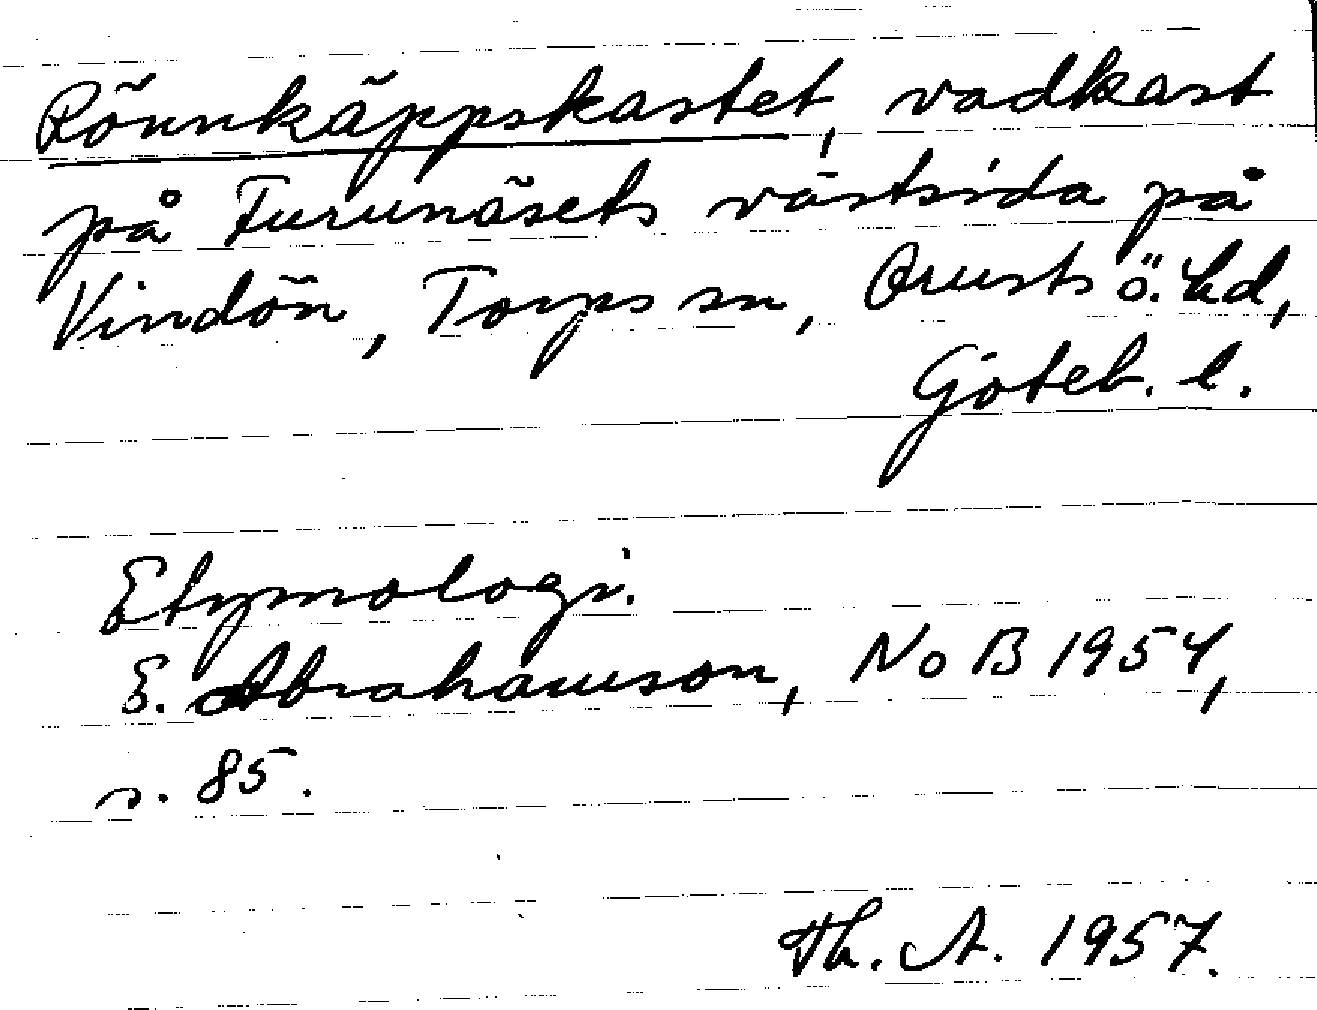 Rönnkäppskastet, vadkast
på Furunäsets västsida på
Vindön, Torps sn, Orusts ö. hd,
Göteb. l.
Etymologi.
E. Abrahamson, NoB 1954,
s. 85.
Th. A. 1957.